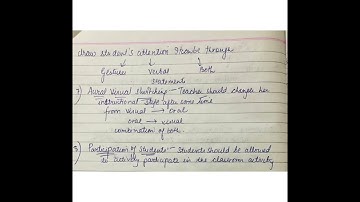 draw student's attention It can be through
Gestures Verbal Both
statements
7) Aural Visual switching - Teacher should change her
instructional style after some time
from visual → oral
oral → visual
combination of both.
8) Participation of Students - Students should be allowed
to actively participate in the classroom activity